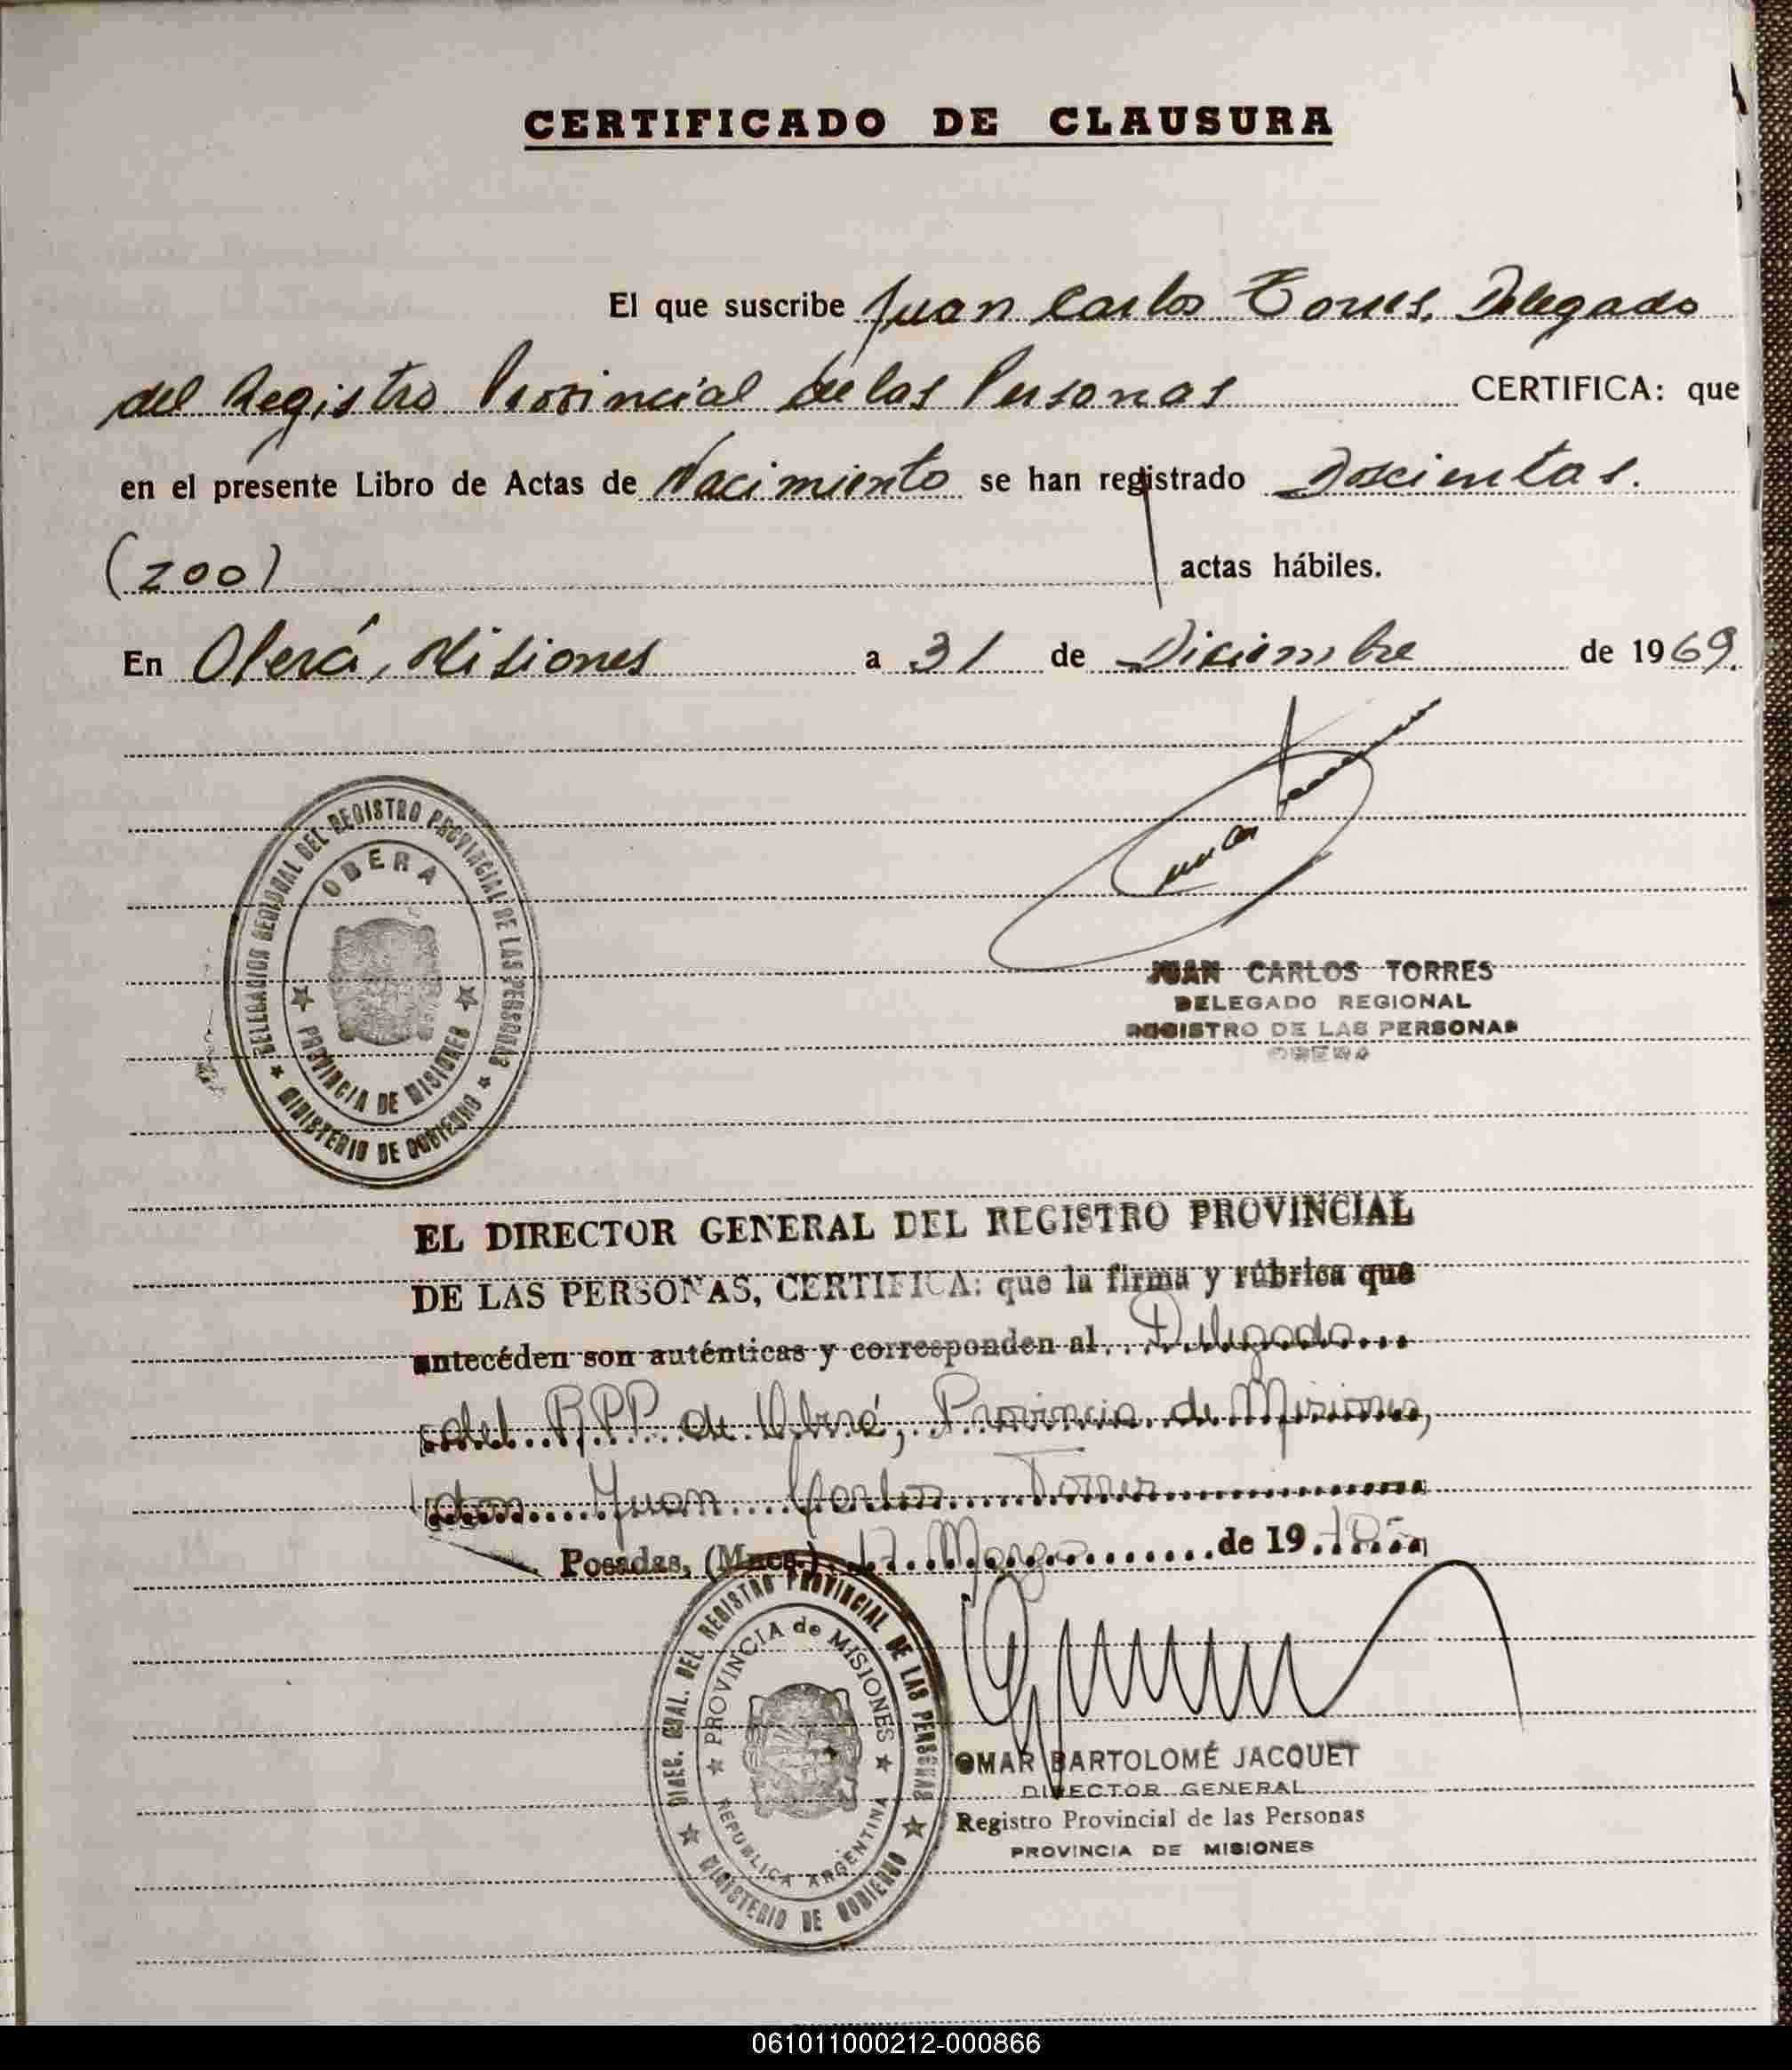 CERTIFICADO DE CLAUSURA
El que suscribe Juan Carlos Torres, Delegado
del Registro Provincial de las Personas CERTIFICA: que
en el presente Libro de Actas de Nacimiento se han registrado Doscientas.
(200) actas hábiles.
En Oberá, Misiones a 31 de Diciembre de 1969.
DELEGACION REGIONAL DEL REGISTRO PROVINCIAL DE LAS PERSONAS
OBERA
PROVINCIA DE MISIONES
MINISTERIO DE GOBIERNO
JUAN CARLOS TORRES
DELEGADO REGIONAL
REGISTRO DE LAS PERSONAS
OBERA
EL DIRECTOR GENERAL DEL REGISTRO PROVINCIAL
DE LAS PERSONAS, CERTIFICA: que la firma y rúbrica que
antecéden son auténticas y corresponden al Delegado
del RPP de Oberá, Provincia de Misiones,
don Juan Carlos Torres
Posadas, (Mnes.) 17 Marzo de 19
DIREC. GRAL. DEL REGISTRO PROVINCIAL DE LAS PERSONAS
PROVINCIA de MISIONES
REPUBLICA ARGENTINA
MINISTERIO DE GOBIERNO
OMAR BARTOLOMÉ JACQUET
DIRECTOR GENERAL
Registro Provincial de las Personas
PROVINCIA DE MISIONES
061011000212-000866